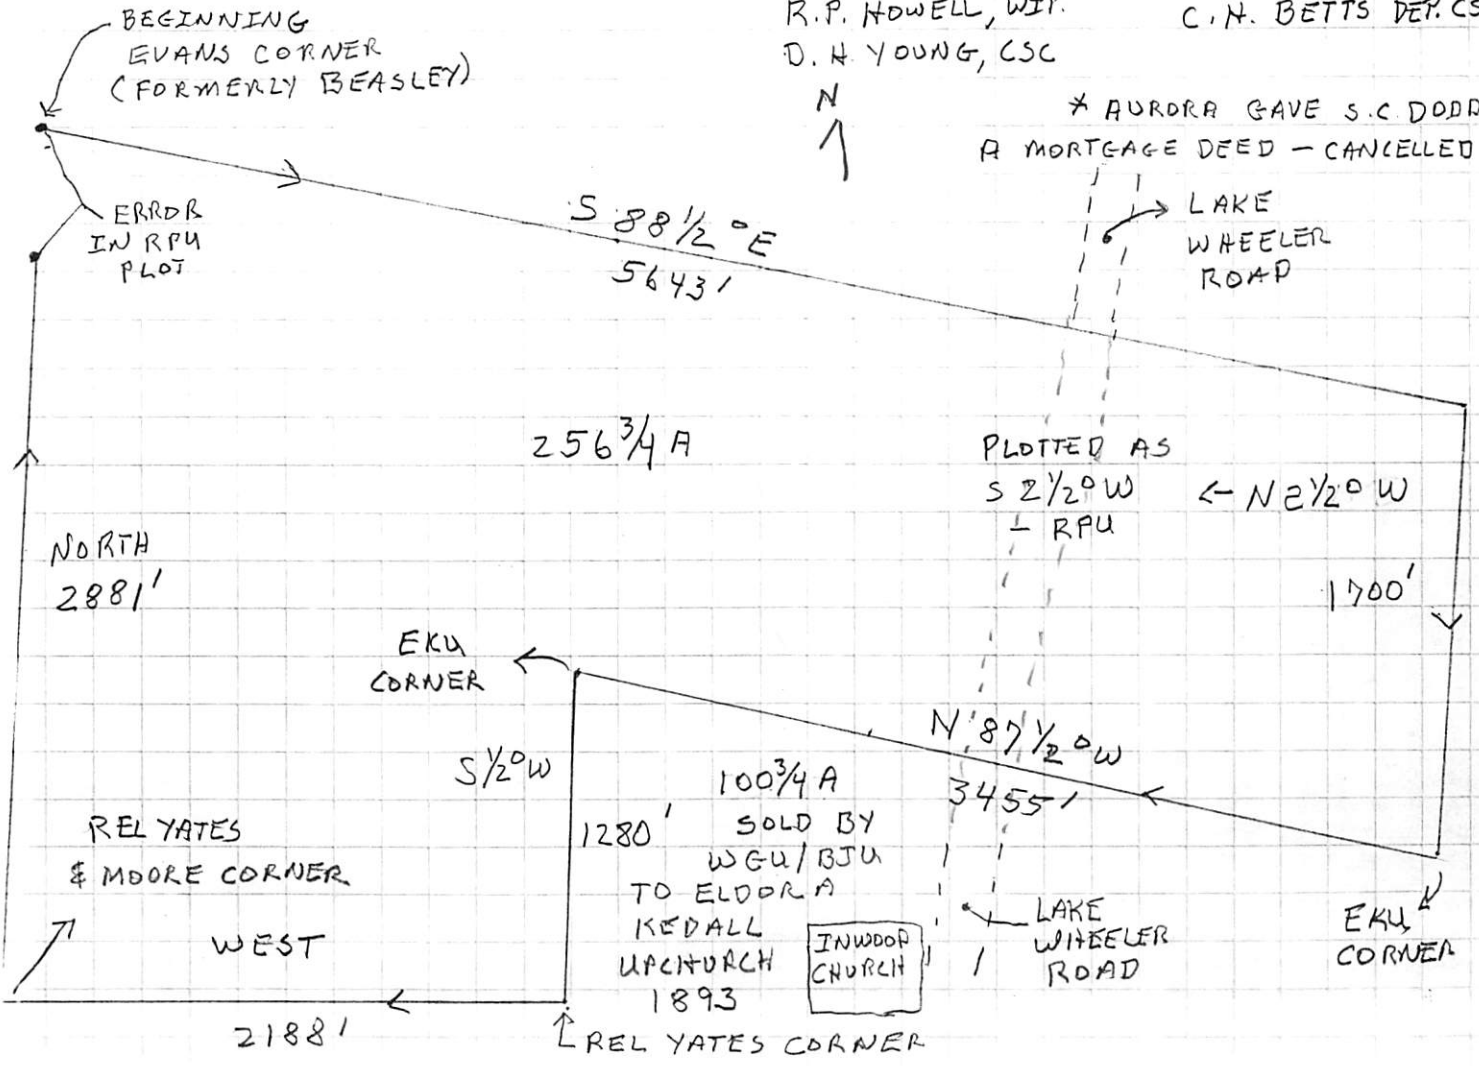 BEGINNING
EVANS CORNER
(FORMERLY BEASLEY)
R.P. HOWELL, WIT.
C. H. BETTS DEP. CS
D. H. YOUNG, CSC
N
* AURORA GAVE S.C. DODD
A MORTGAGE DEED – CANCELLED
LAKE
WHEELER
ROAD
ERROR
IN RPU
PLOT
S 88 1/2 ° E
5643'
256 3/4 A
PLOTTED AS
S 2 1/2° W
– RPU
← N 2 1/2° W
NORTH
2881'
1700'
EKU
CORNER
N 87 1/2 ° W
3455'
S 1/2° W
1280'
100 3/4 A
SOLD BY
WGU/BJU
TO ELDORA
KEDALL
UPCHURCH
1893
REL YATES
& MOORE CORNER
WEST
2188'
INWOOD
CHURCH
LAKE
WHEELER
ROAD
EKU
CORNER
REL YATES CORNER